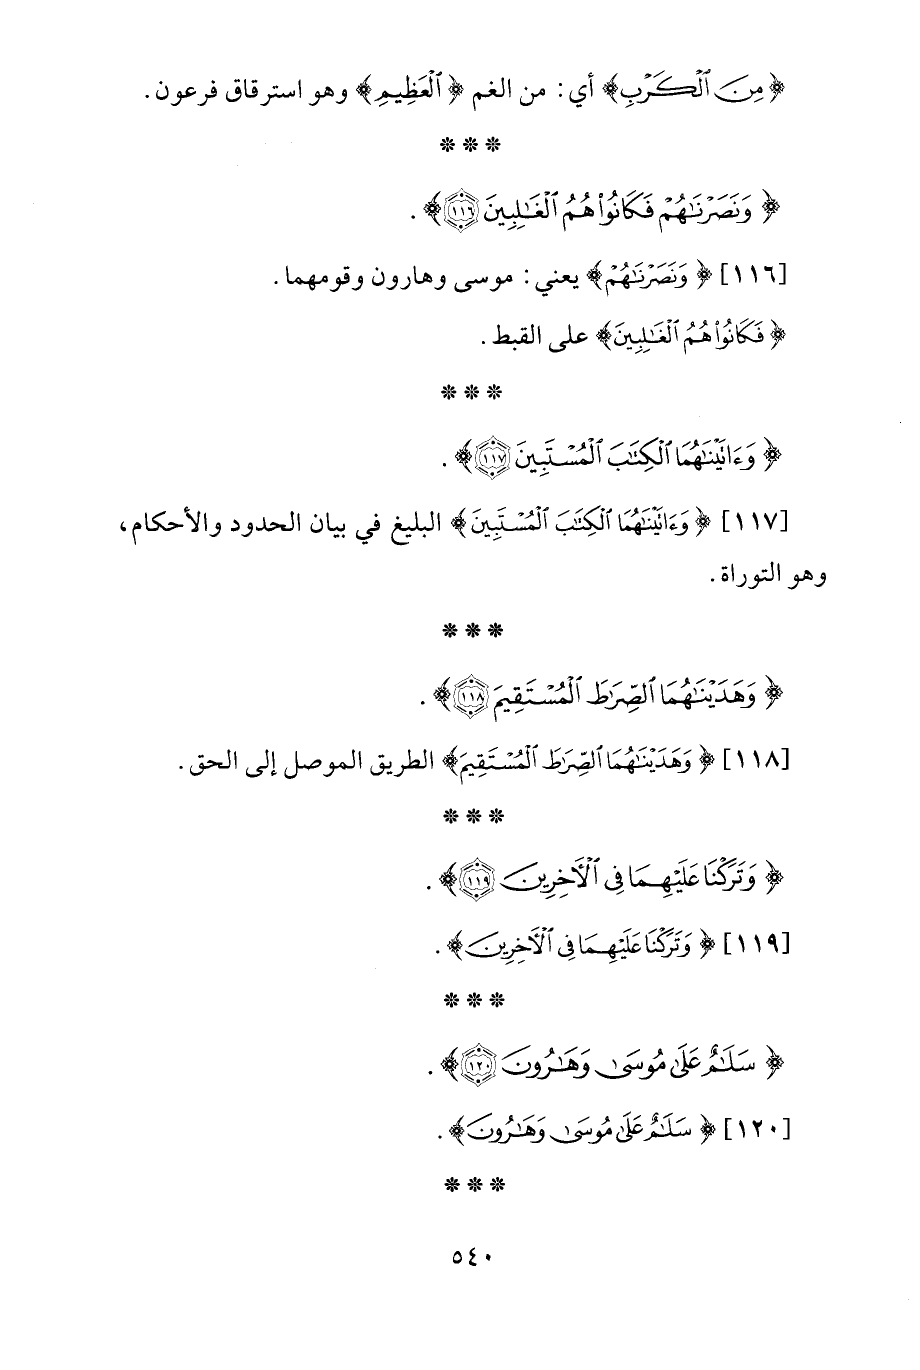 ﴿مِنَ ٱلْكَرْبِ﴾ أي: من الغم ﴿ٱلْعَظِيمِ﴾ وهو استرقاق فرعون.
* * *
﴿وَنَصَرْنَٰهُمْ فَكَانُوا۟ هُمُ ٱلْغَٰلِبِينَ ١١٦﴾.
[١١٦] ﴿وَنَصَرْنَٰهُمْ﴾ يعني: موسى وهارون وقومهما.
﴿فَكَانُوا۟ هُمُ ٱلْغَٰلِبِينَ﴾ على القبط.
* * *
﴿وَءَاتَيْنَٰهُمَا ٱلْكِتَٰبَ ٱلْمُسْتَبِينَ ١١٧﴾.
[١١٧] ﴿وَءَاتَيْنَٰهُمَا ٱلْكِتَٰبَ ٱلْمُسْتَبِينَ﴾ البليغ في بيان الحدود والأحكام،
وهو التوراة.
* * *
﴿وَهَدَيْنَٰهُمَا ٱلصِّرَٰطَ ٱلْمُسْتَقِيمَ ١١٨﴾.
[١١٨] ﴿وَهَدَيْنَٰهُمَا ٱلصِّرَٰطَ ٱلْمُسْتَقِيمَ﴾ الطريق الموصل إلى الحق.
* * *
﴿وَتَرَكْنَا عَلَيْهِمَا فِى ٱلْأَخِرِينَ ١١٩﴾.
[١١٩] ﴿وَتَرَكْنَا عَلَيْهِمَا فِى ٱلْأَخِرِينَ﴾.
* * *
﴿سَلَٰمٌ عَلَىٰ مُوسَىٰ وَهَٰرُونَ ١٢٠﴾.
[١٢٠] ﴿سَلَٰمٌ عَلَىٰ مُوسَىٰ وَهَٰرُونَ﴾.
* * *
٥٤٠